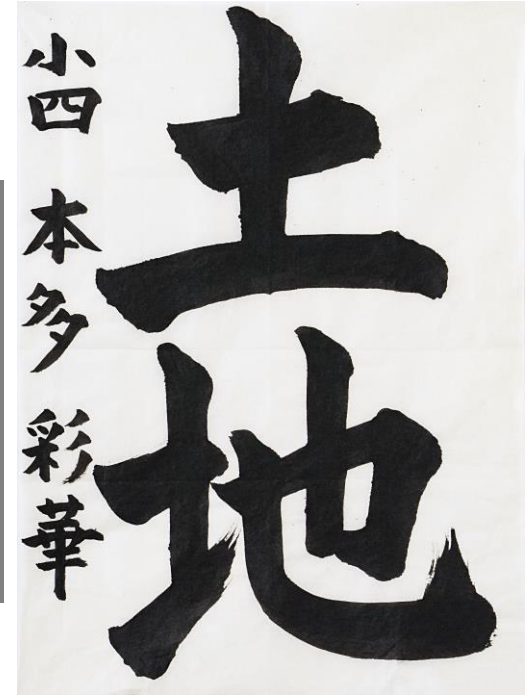 土地
小四 本多 彩華